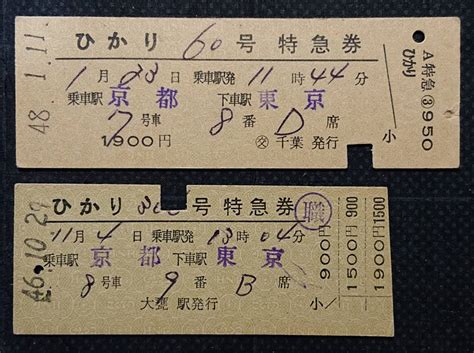 48.1.11.
ひかり 60号 特急券
1月23日 乗車駅発 11時44分
乗車駅 京都 下車駅 東京
7号車 8番 D席
1900円 交 千葉 発行
A特急③950
ひかり
小
46.10.29
ひかり 号 特急券 職
11月4日 乗車駅発 13時04分
乗車駅 京都 下車駅 東京
8号車 9番 B席
大甕 駅発行 小
900円
1500円 900
1900円 1500